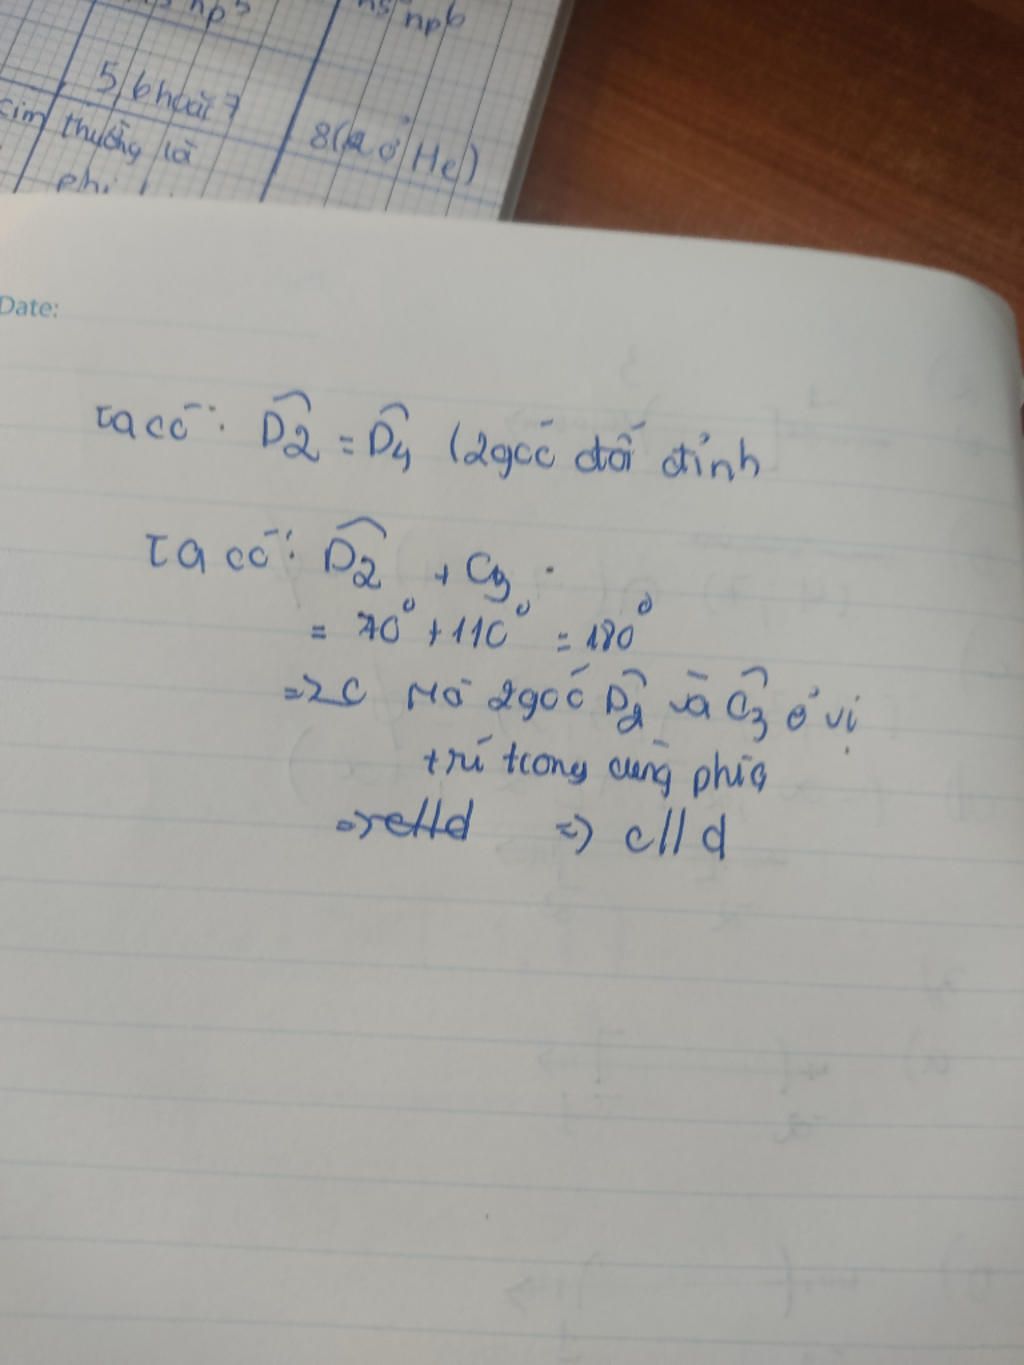 np5
ns np6
5,6 hoặc 7
8(2 ở He)
thường là
phi
Date:
Ta có: D2 = D4 (2góc đối đỉnh
Ta có: D2 + C3
= 70° + 110° = 180°
2góc D2 và C3 ở vị
trí trong cùng phía
=> c//d => c//d